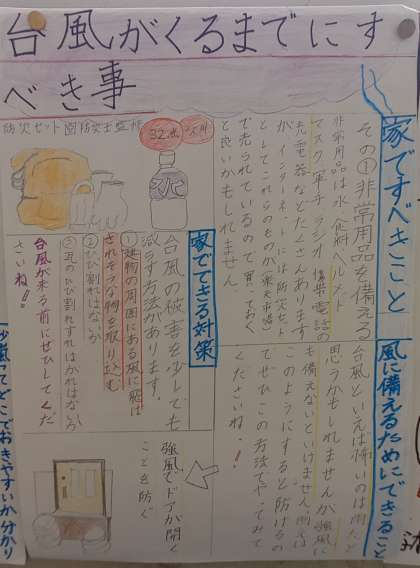 台風がくるまでにす
べき事
家ですべきこと
その①非常用品を備える
非常用品は水、食料、ヘルメト
マスク、軍手、ラジオ、携帯電話の
充電器などたくさんあります
が、インターネットでは防災セット
としてこれらのものが(楽天市場)
で売られているので買っておく
と良いかもしれません
防災セット図防災士監修
32点
水
家でできる対策
台風の被害を少しでも
減らす方法があります。
①建物の周囲にある風に飛ば
されそうな物を取り込む
②ひび割れはないか
③瓦のひび割れずれはがれはないか
台風が来る前にぜひしてくだ
さいね!!
風に備えるためにできること
台風といえば怖いのは雨だと
思うかもしれませんが強風に
も備えないといけません。例えば
このようにすると防げるの
でぜひこの方法でやってみて
くださいね!!
強風でドアが開く
ことを防ぐ
台風ってどこでおきやすいか分かり